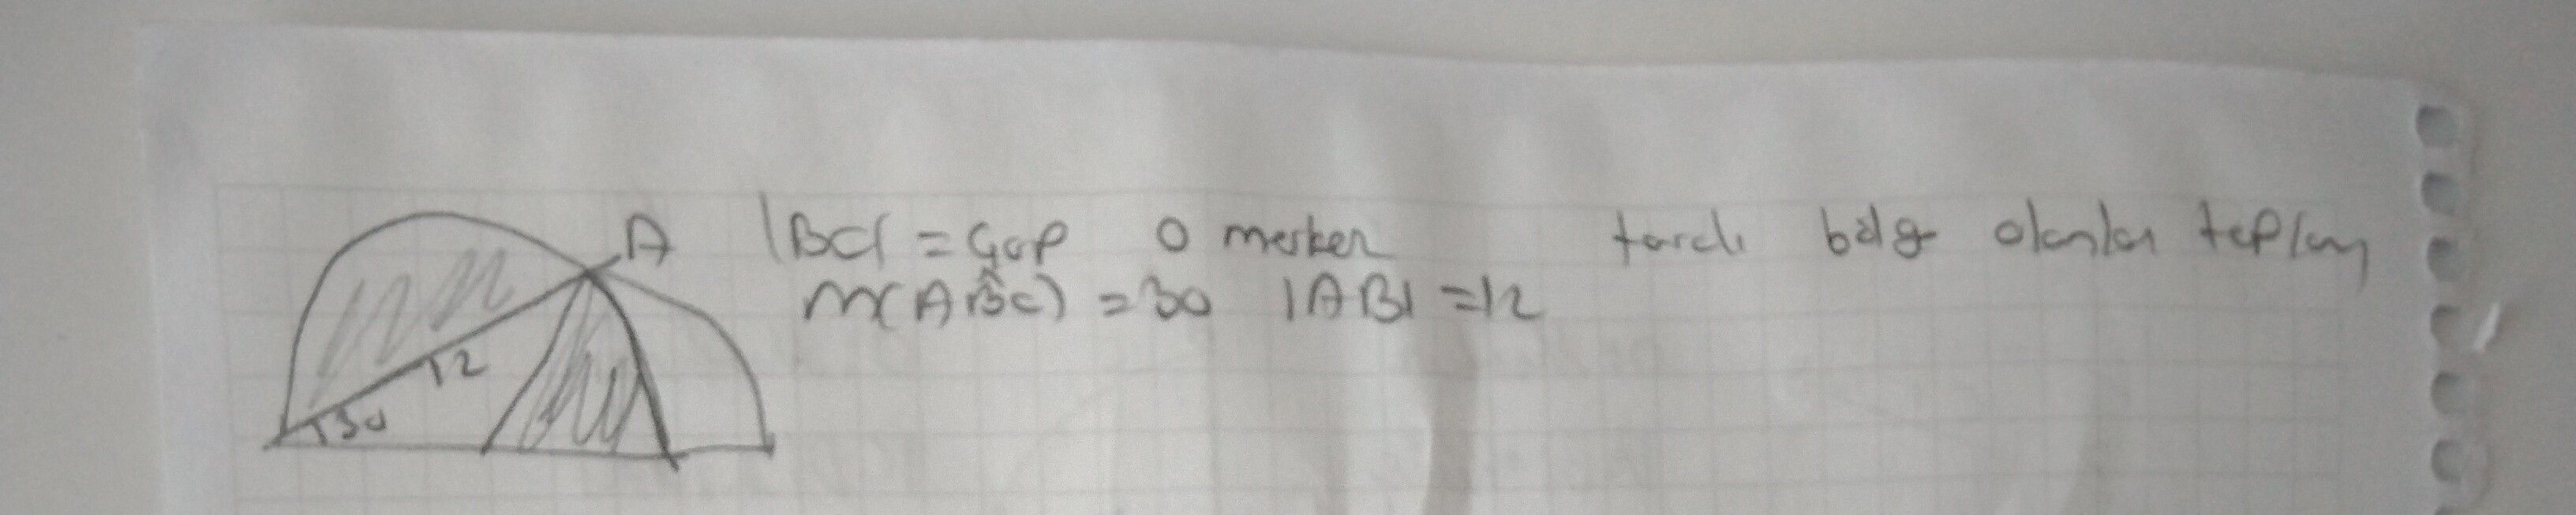 A |BC| = Çap O merkez taralı bölge alanları toplamı
m(ABC) = 30 |AB| = 12
12
30